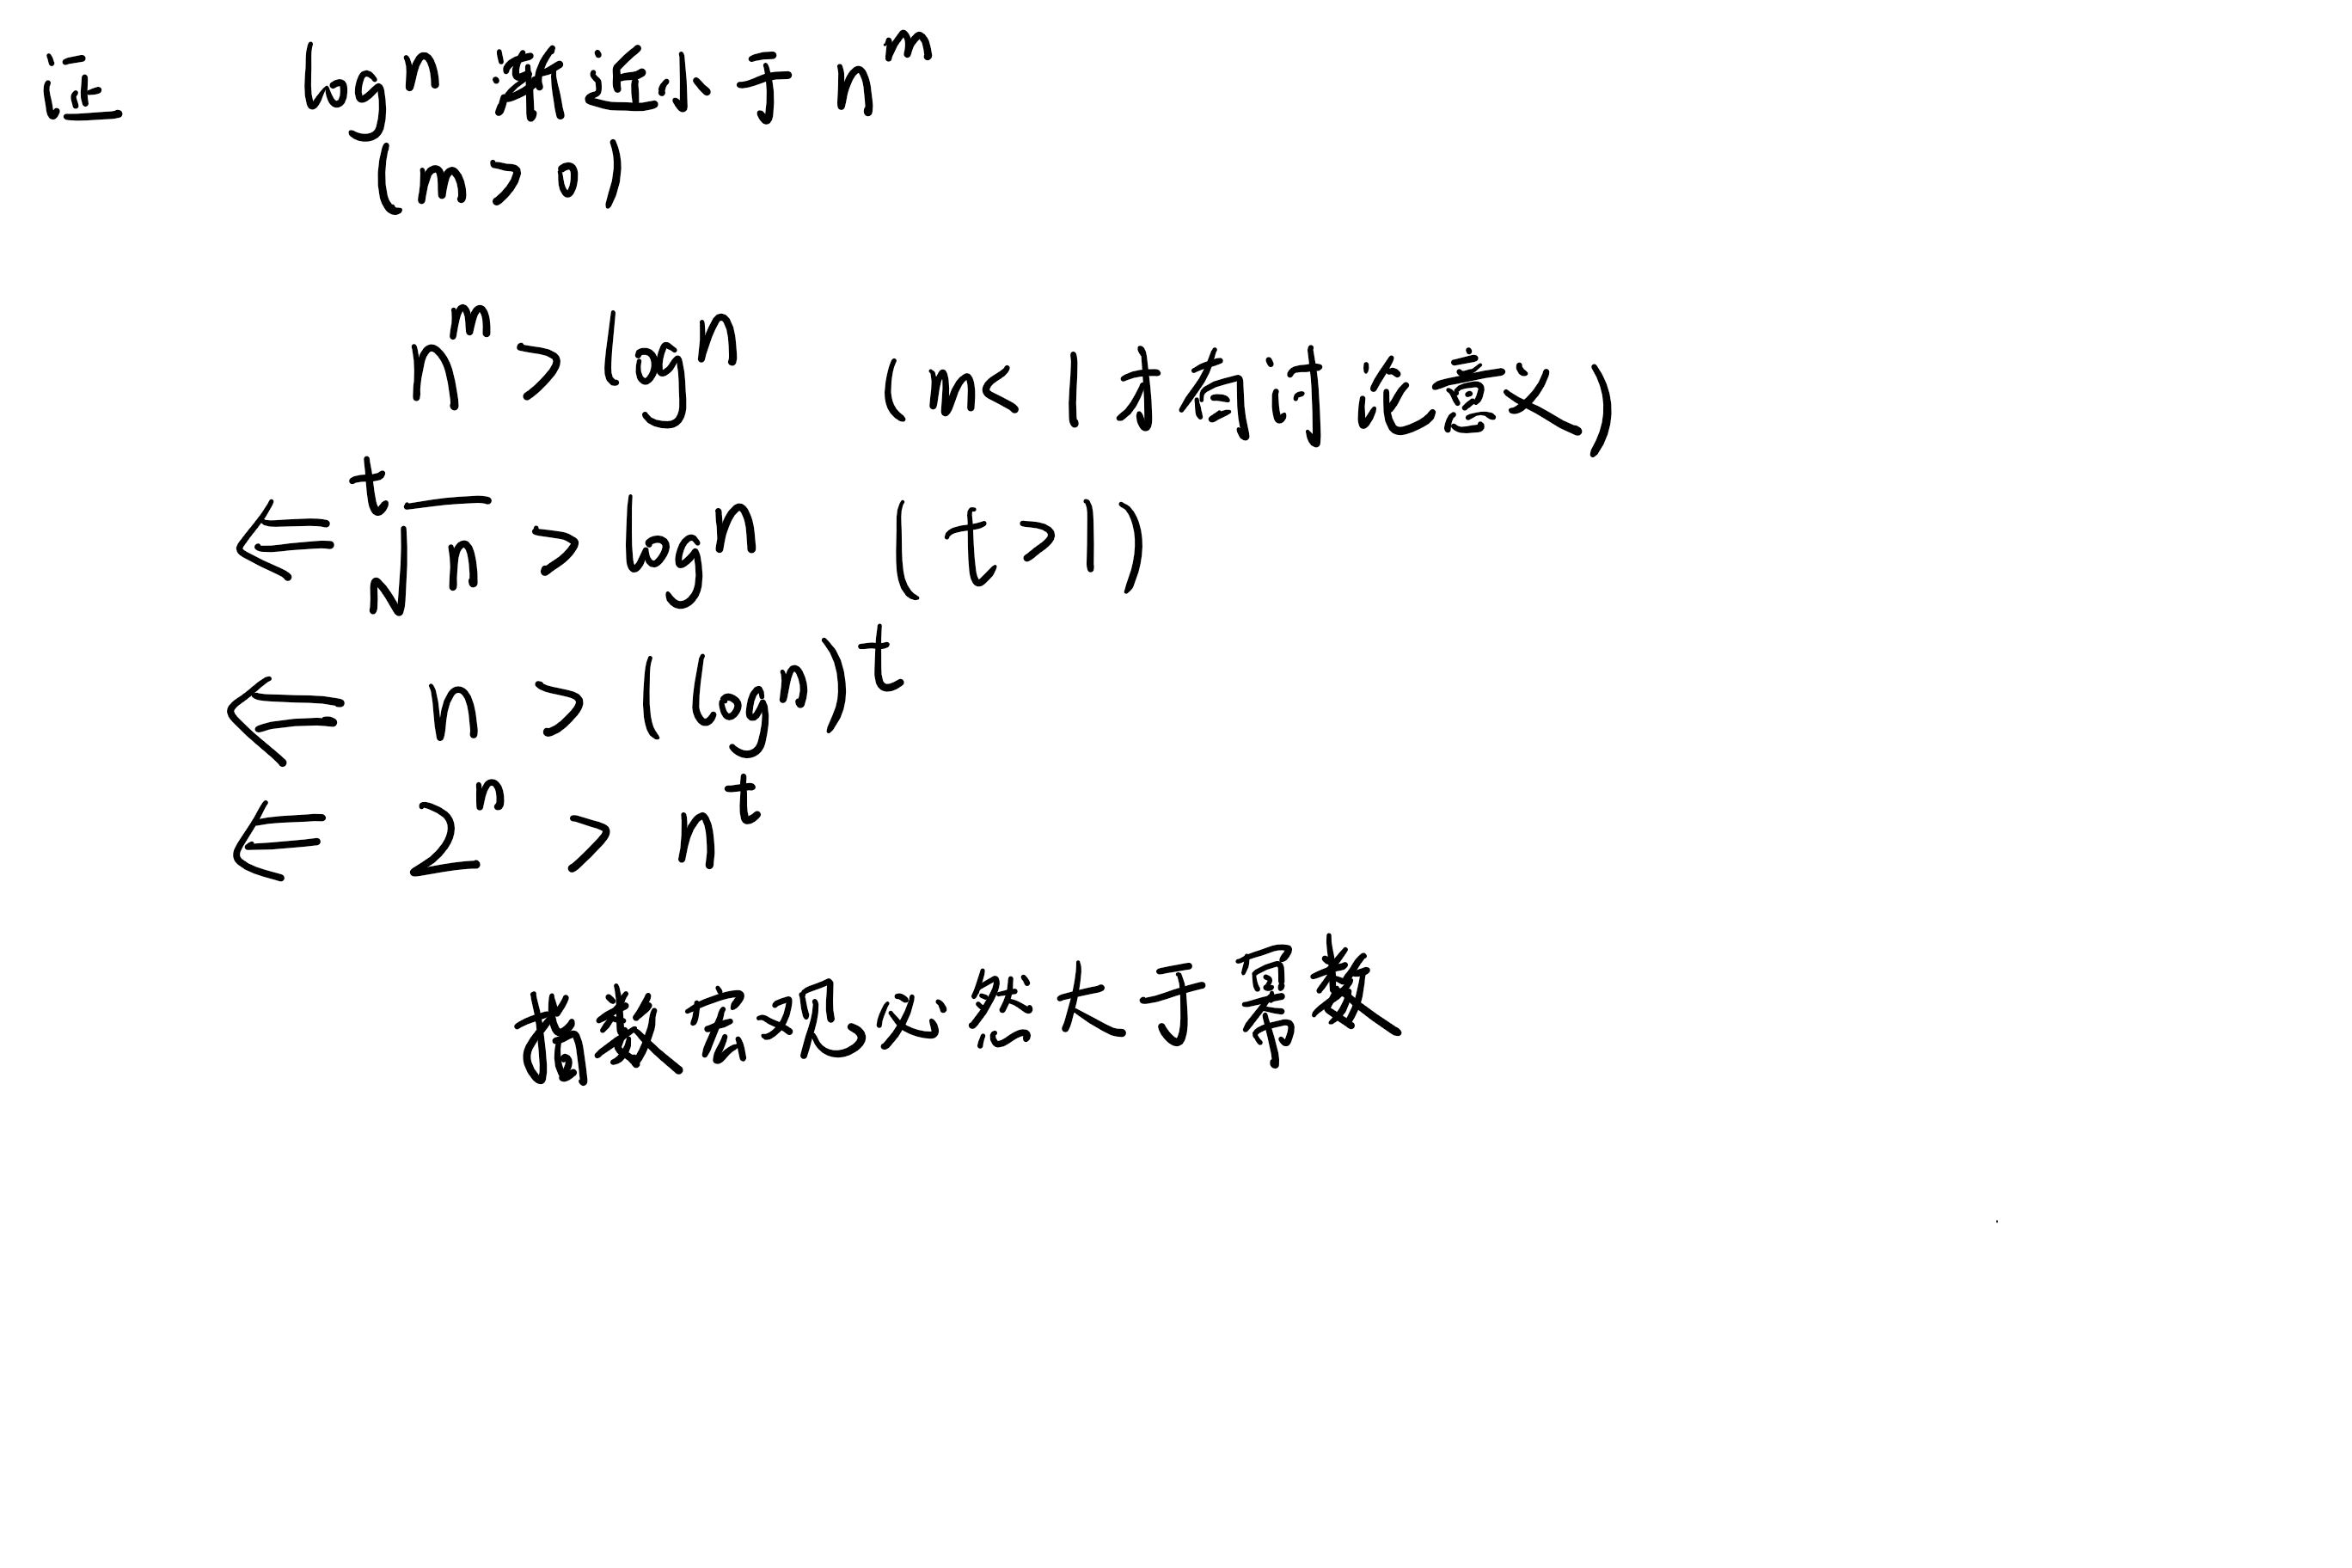 证 log n 渐近小于 n^m
(m > 0)
n^m > log n (m < 1 才有讨论意义)
⇐ ᵗ√n > log n (t > 1)
⇐ n > (log n)^t
⇐ 2^n > n^t
指数宏观必然大于幂数